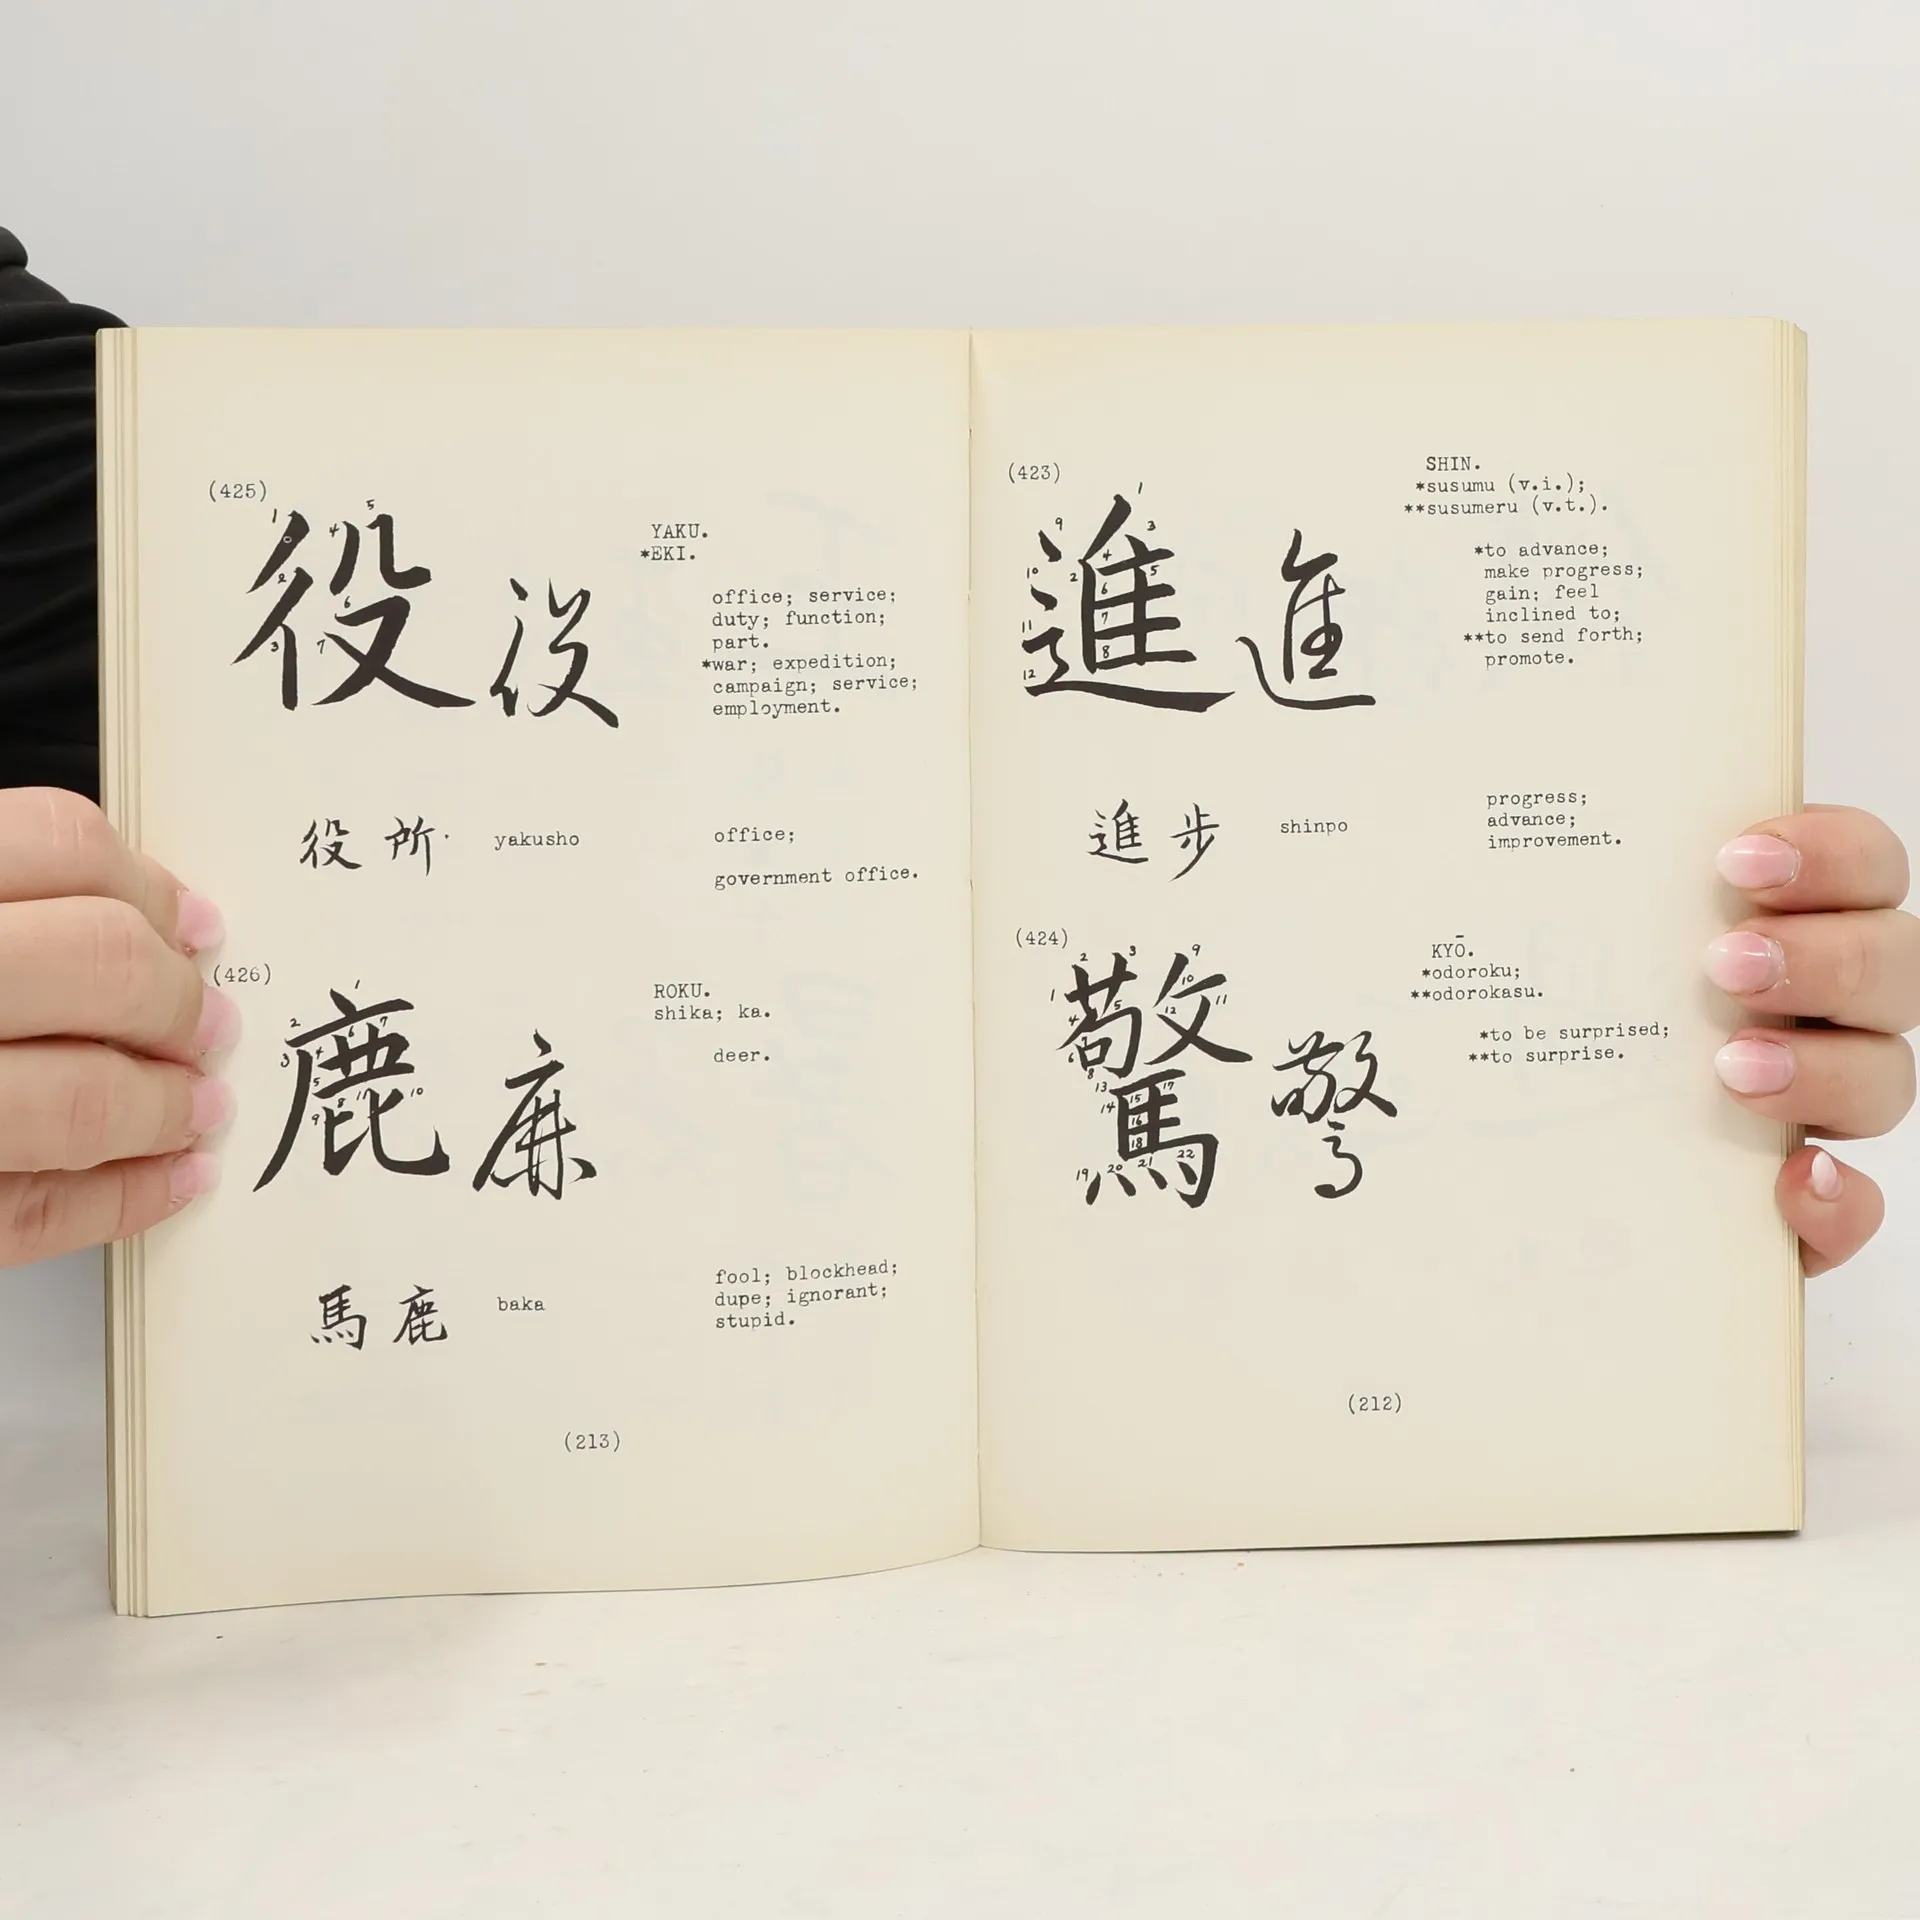 (423)
進 進
SHIN.
*susumu (v.i.);
**susumeru (v.t.).
*to advance;
make progress;
gain; feel
inclined to;
**to send forth;
promote.
進歩 shinpo
progress;
advance;
improvement.
(424)
驚 驚
KYŌ.
*odoroku;
**odorokasu.
*to be surprised;
**to surprise.
(212)
(425)
役 役
YAKU.
*EKI.
office; service;
duty; function;
part.
*war; expedition;
campaign; service;
employment.
役所 yakusho
office;
government office.
(426)
鹿 鹿
ROKU.
shika; ka.
deer.
馬鹿 baka
fool; blockhead;
dupe; ignorant;
stupid.
(213)